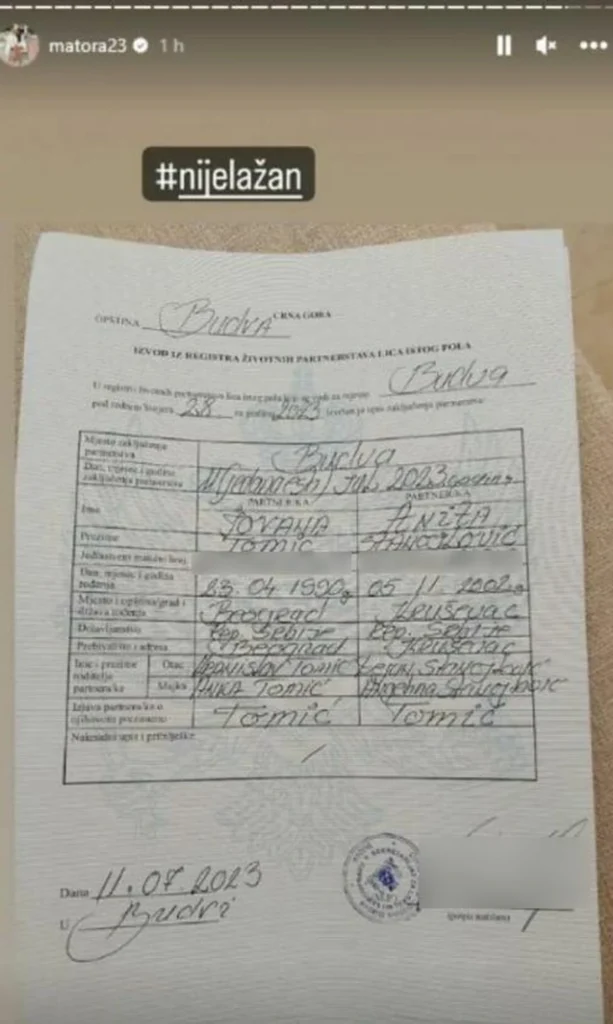 matora23 1 h
#nijelažan
CRNA GORA
OPŠTINA Budva
IZVOD IZ REGISTRA ŽIVOTNIH PARTNERSTAVA LICA ISTOG POLA
U registru životnih partnerstava lica istog pola koji se vodi za mjesto Budva
pod rednim brojem 28 za godinu 2023 izvršen je upis zaključenja partnerstva:
Mjesto zaključenja partnerstva Budva
Dan, mjesec i godina zaključenja partnerstva jul 2023. godine
PARTNERKA PARTNERKA
Ime JOVANA ANIŽA
Prezime TOMIĆ STANOJLOVIĆ
Jedinstveni matični broj
Dan, mjesec i godina rođenja 23.04 1990g 05 11. 2002g
Mjesto i opština/grad i država rođenja Beograd Kruševac
Državljanstvo Rep. Srbije Rep. Srbije
Prebivalište i adresa Beograd Kruševac
Ime i prezime roditelja partnera/ke Otac TOMIĆ
Majka ANKA TOMIĆ
Izjava partnera/ke o njihovom prezimenu Tomić Tomić
Naknadni upisi i primjedbe
Dana 11.07.2023
U Budvi